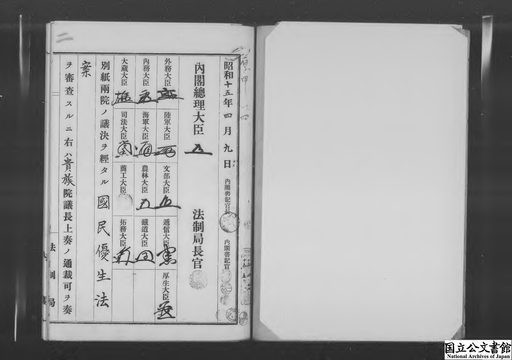 二
昭和十五年四月九日
内閣書記官長
内閣書記官
内閣總理大臣
法制局長官
外務大臣
陸軍大臣
文部大臣
遞信大臣
厚生大臣
内務大臣
海軍大臣
農林大臣
鐵道大臣
大藏大臣
司法大臣
商工大臣
拓務大臣
別紙兩院ノ議決ヲ經タル國民優生法
案
ヲ審査スルニ右ハ貴族院議長上奏ノ通裁可ヲ奏
法制局
国立公文書館
National Archives of Japan